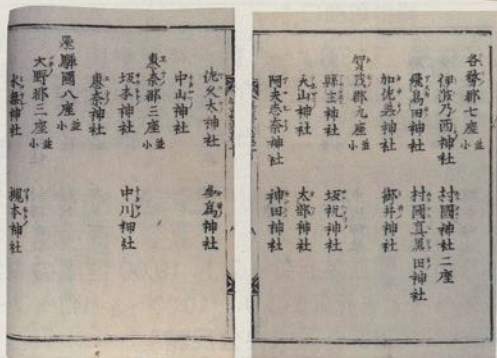 各務郡七座 並小
伊波乃西神社 村國神社二座
飛鳥田神社 村國真墨田神社
加佐美神社 御井神社
賀茂郡九座 並小
縣主神社 坂祝神社
大山神社 太部神社
阿夫志奈神社 神田神社
佐久太神社 多爲神社
中山神社
惠奈郡三座 並小
坂本神社 中川神社
惠奈神社
飛驒國八座 並小
大野郡三座 並小
水無神社 槻本神社